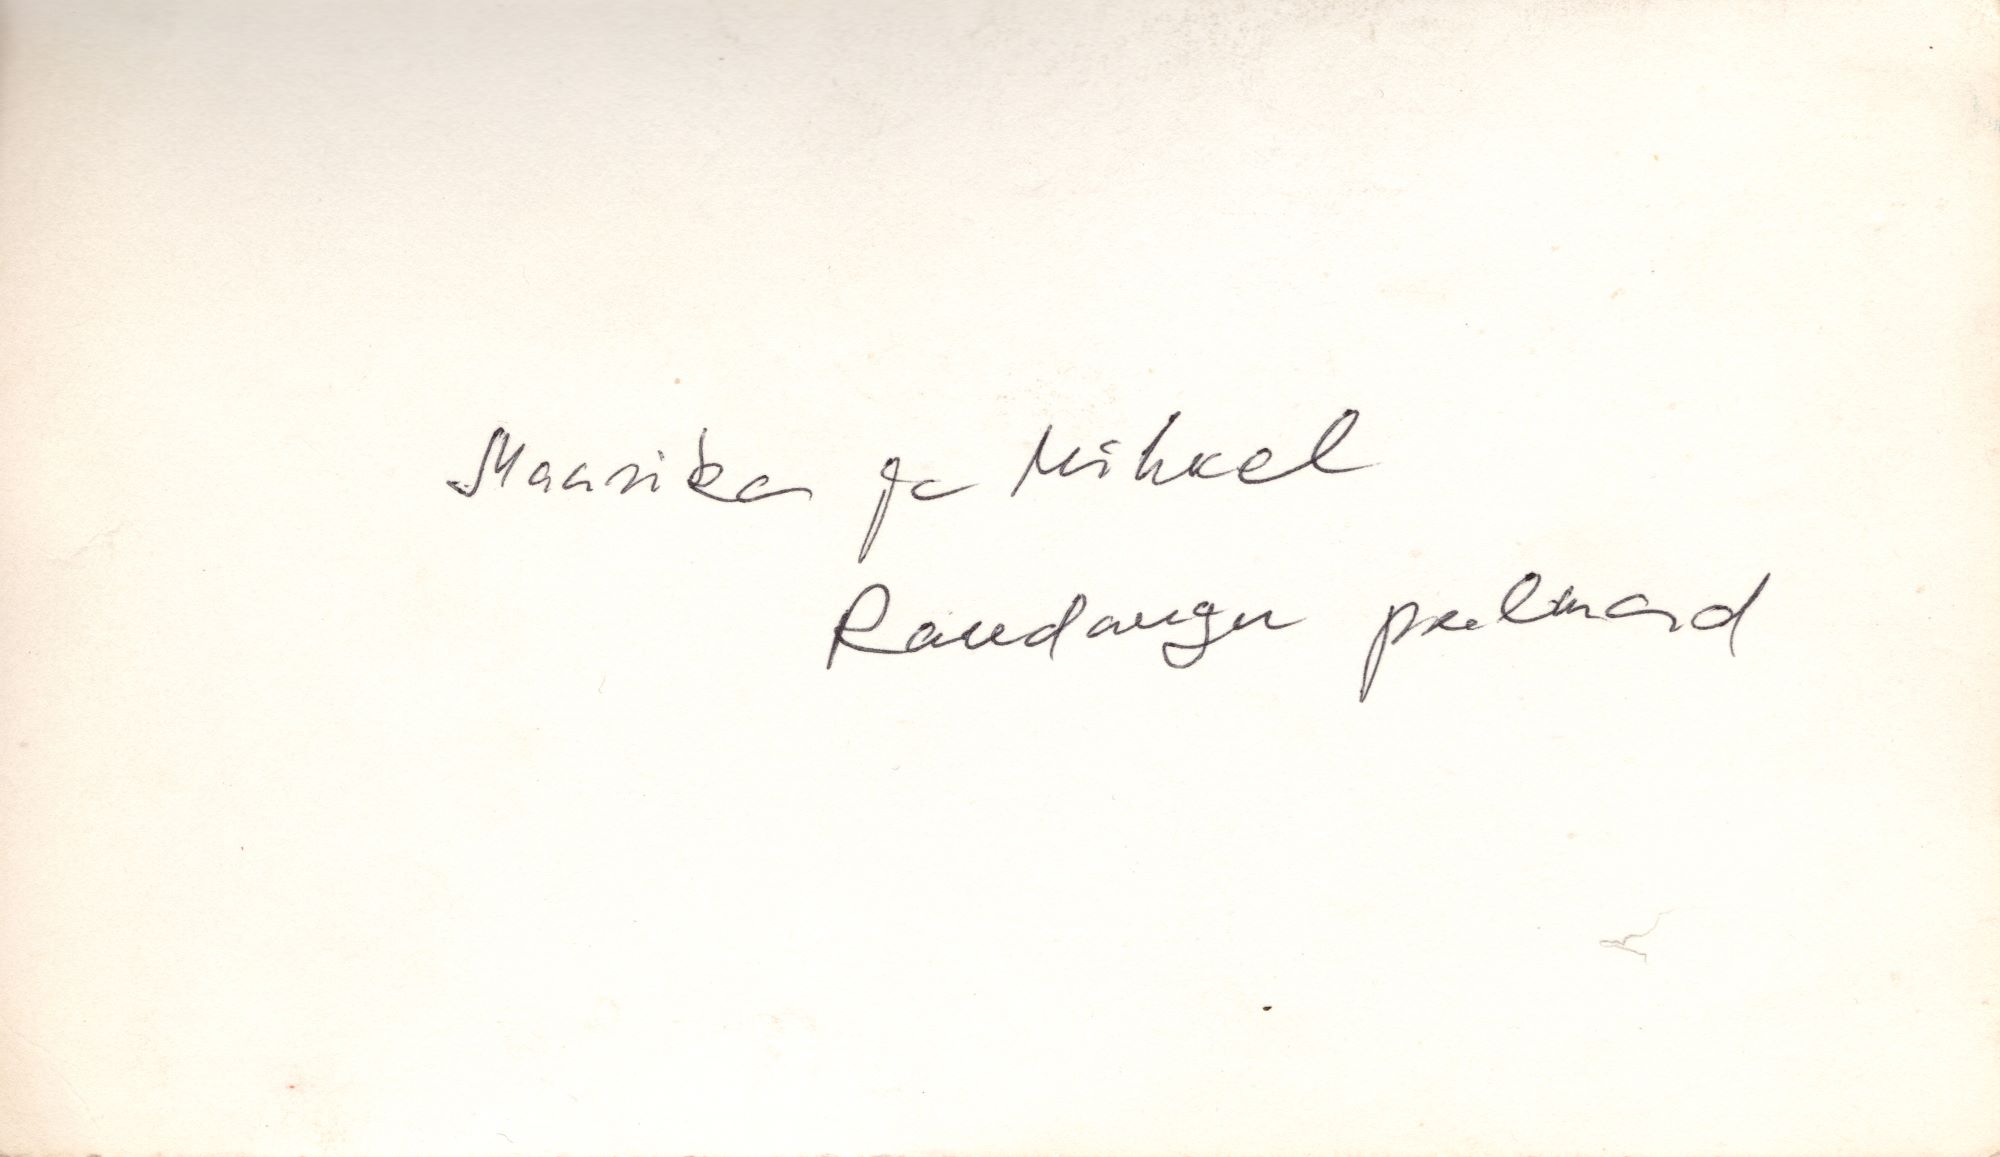 Maasika ja Mihkel
Raudangu pulmad